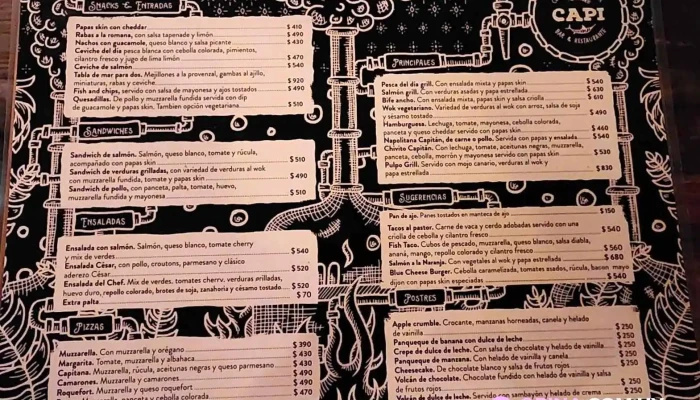 SNACKS & ENTRADAS
Papas skin con cheddar $ 410
Rabas a la romana, con salsa tapenade y limón $ 490
Nachos con guacamole, queso blanco y salsa picante $ 430
Ceviche del día pesca blanca con cebolla colorada, pimientos,
cilantro fresco y jugo de lima limón $ 470
Ceviche de salmón $ 540
Tabla de mar para dos. Mejillones a la provenzal, gambas al ajillo,
miniaturas, rabas y ceviche. $ 920
Fish and chips, servido con salsa de mayonesa y ajos tostados $ 490
Quesadillas. De pollo y muzzarella fundida servida con dip
de guacamole y papas skin. Tambien opción vegetariana $ 510
SANDWICHES
Sandwich de salmón. Salmón, queso blanco, tomate y rúcula,
acompañado con papas skin $ 510
Sandwich de verduras grilladas, con variedad de verduras al wok
con muzzarella fundida, tomate y papas skin $ 490
Sandwich de pollo, con panceta, palta, tomate, huevo,
muzzarella fundida y mayonesa $ 510
ENSALADAS
Ensalada con salmón. Salmón, queso blanco, tomate cherry
y mix de verdes $ 540
Ensalada César, con pollo, croutons, parmesano y clásico
aderezo César $ 520
Ensalada del Chef. Mix de verdes, tomates cherry, verduras grilladas,
huevo duro, repollo colorado, brotes de soja, zanahoria y césamo tostado $ 520
Extra palta $ 70
PIZZAS
Muzzarella. Con muzzarella y orégano $ 390
Margarita. Tomate, muzzarella y albahaca $ 430
Capitana. Muzzarella, rúcula, aceitunas negras y queso parmesano $ 430
Camarones. Muzzarella y camarones $ 490
Roquefort. Muzzarella y queso roquefort $ 490
muzzarella, panceta y cebolla colorada $ 470
CAPI
BAR & RESTAURANTE
PRINCIPALES
Pesca del día grill. Con ensalada mixta y papas skin $ 540
Salmón grill. Con verduras asadas y papa estrellada $ 630
Bife ancho. Con ensalada mixta, papas skin y salsa criolla $ 610
Wok vegetariano. Variedad de verduras al wok con arroz, salsa de soja
y sésamo tostado $ 490
Hamburguesa. Lechuga, tomate, mayonesa, cebolla colorada,
panceta y queso cheddar servido con papas skin $ 460
Napolitana Capitán, de carne o pollo. Servida con papas y ensalada $ 540
Chivito Capitán. Con lechuga, tomate, aceitunas negras, muzzarella,
panceta, cebolla, morrón y mayonesa servido con papas skin $ 530
Pulpo Grill. Servido con mojo canario, verduras al wok y
papa estrellada $ 830
SUGERENCIAS
Pan de ajo. Panes tostados en manteca de ajo $ 150
Tacos al pastor. Carne de vaca y cerdo adobadas servido con una
criolla de cebolla y cilantro fresco $ 540
Fish Taco. Cubos de pescado, muzzarella, queso blanco, salsa diabla,
ananá, mango, repollo colorado y cilantro fresco $ 560
Salmón a la Naranja. Con vegetales al wok y papa estrellada $ 680
Blue Cheese Burger. Cebolla caramelizada, tomates asados, rúcula, bacon mayo
dijon con papas skin especiadas $ 540
POSTRES
Apple crumble. Crocante, manzanas horneadas, canela y helado
de vainilla $ 250
Panqueque de banana con dulce de leche $ 250
Crepe de dulce de leche. Con salsa de chocolate y helado de vainilla $ 250
Panqueque de manzana. Con helado de vainilla y canela $ 250
Cheesecake. De chocolate blanco y salsa de frutos rojos $ 250
Volcán de chocolate. Chocolate fundido con helado de vainilla y salsa
de frutos rojos $ 250
Volcán de dulce de leche. Servido con sambayón y helado de crema $ 250